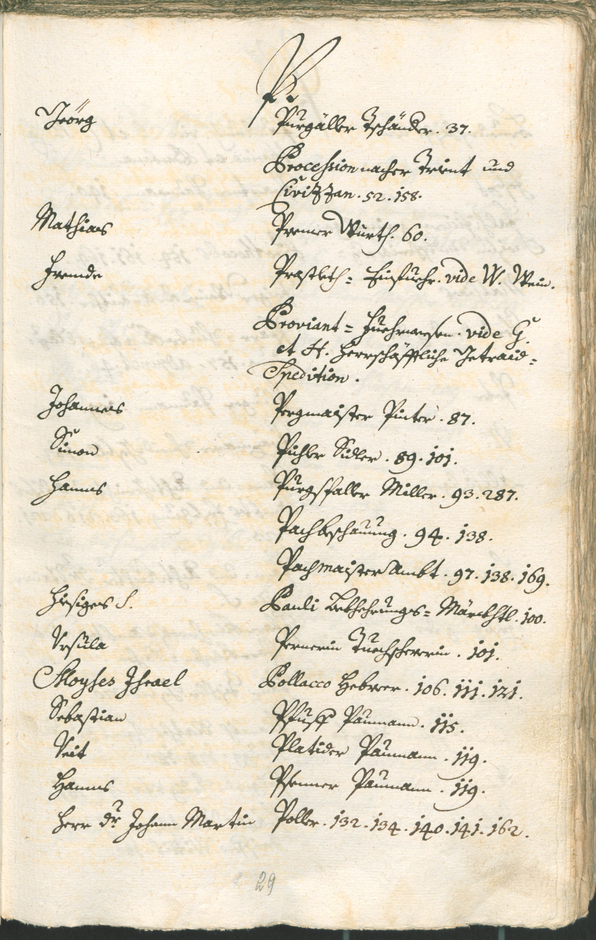 P
Jeörg Purgäller Tschänder. 37.
Procession nacher Trient und
Civitzzan. 52. 158.
Mathias Premer Würth. 60.
Fremde Prastleth= Einfuehr. vide W. Wein.
Proviant= Fuehrwesen. vide G.
et H. Herrschäfftliche Getraid=
Spedition.
Johannes Pergmaister Pinter. 87.
Simon Pichler Sidler. 89. 101.
Hanns Purgstaller Miller. 93. 287.
Pachbeschauung. 94. 138.
Pachmaister Ambt. 97. 138. 169.
Hiesiges S. Pauli Bekhehrungs= Märckhtl. 100.
Vrsula Pernerin Tuechschererin. 101.
Moyses Israel Pollacco Hebreer. 106. 111. 121.
Sebastian Paumann. 115.
Veit Platider Paumann. 119.
Hanns Pfenner Paumann. 119.
Herr Dr. Johann Martin Poller. 132. 134. 140. 141. 162.
29